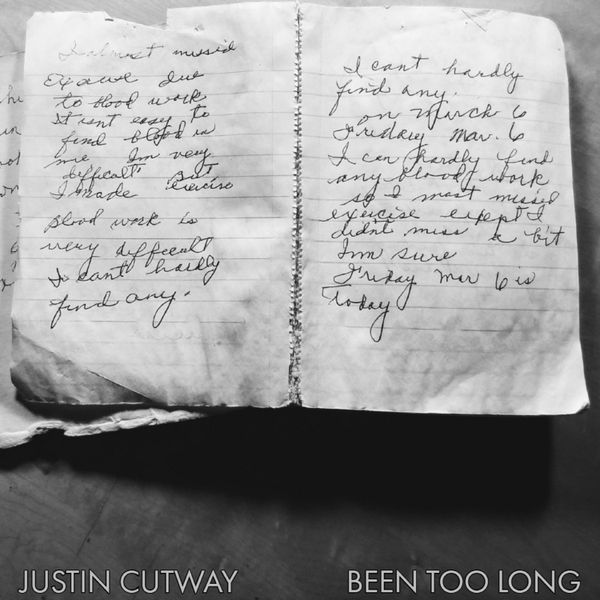 I almost missed
Exercise due
to blood work
It isnt easy to
find blood in
me Im very
difficult But
I made Exercise
Blood work is
very difficult
I cant hardly
find any.
I cant hardly
find any.
on March 6
Friday Mar. 6
I can hardly find
any blood work
so I most missed
exercise except I
didn't miss a bit
Im sure
Friday Mar 6 is
Today
JUSTIN CUTWAY
BEEN TOO LONG